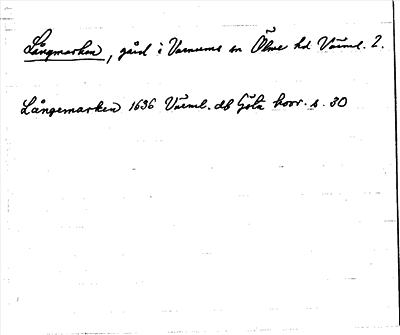 Långmarken, gård i Varnums sn Ölme hd Värml. l.
Långemarken 1636 Värml. db Göta hovr. s. 30